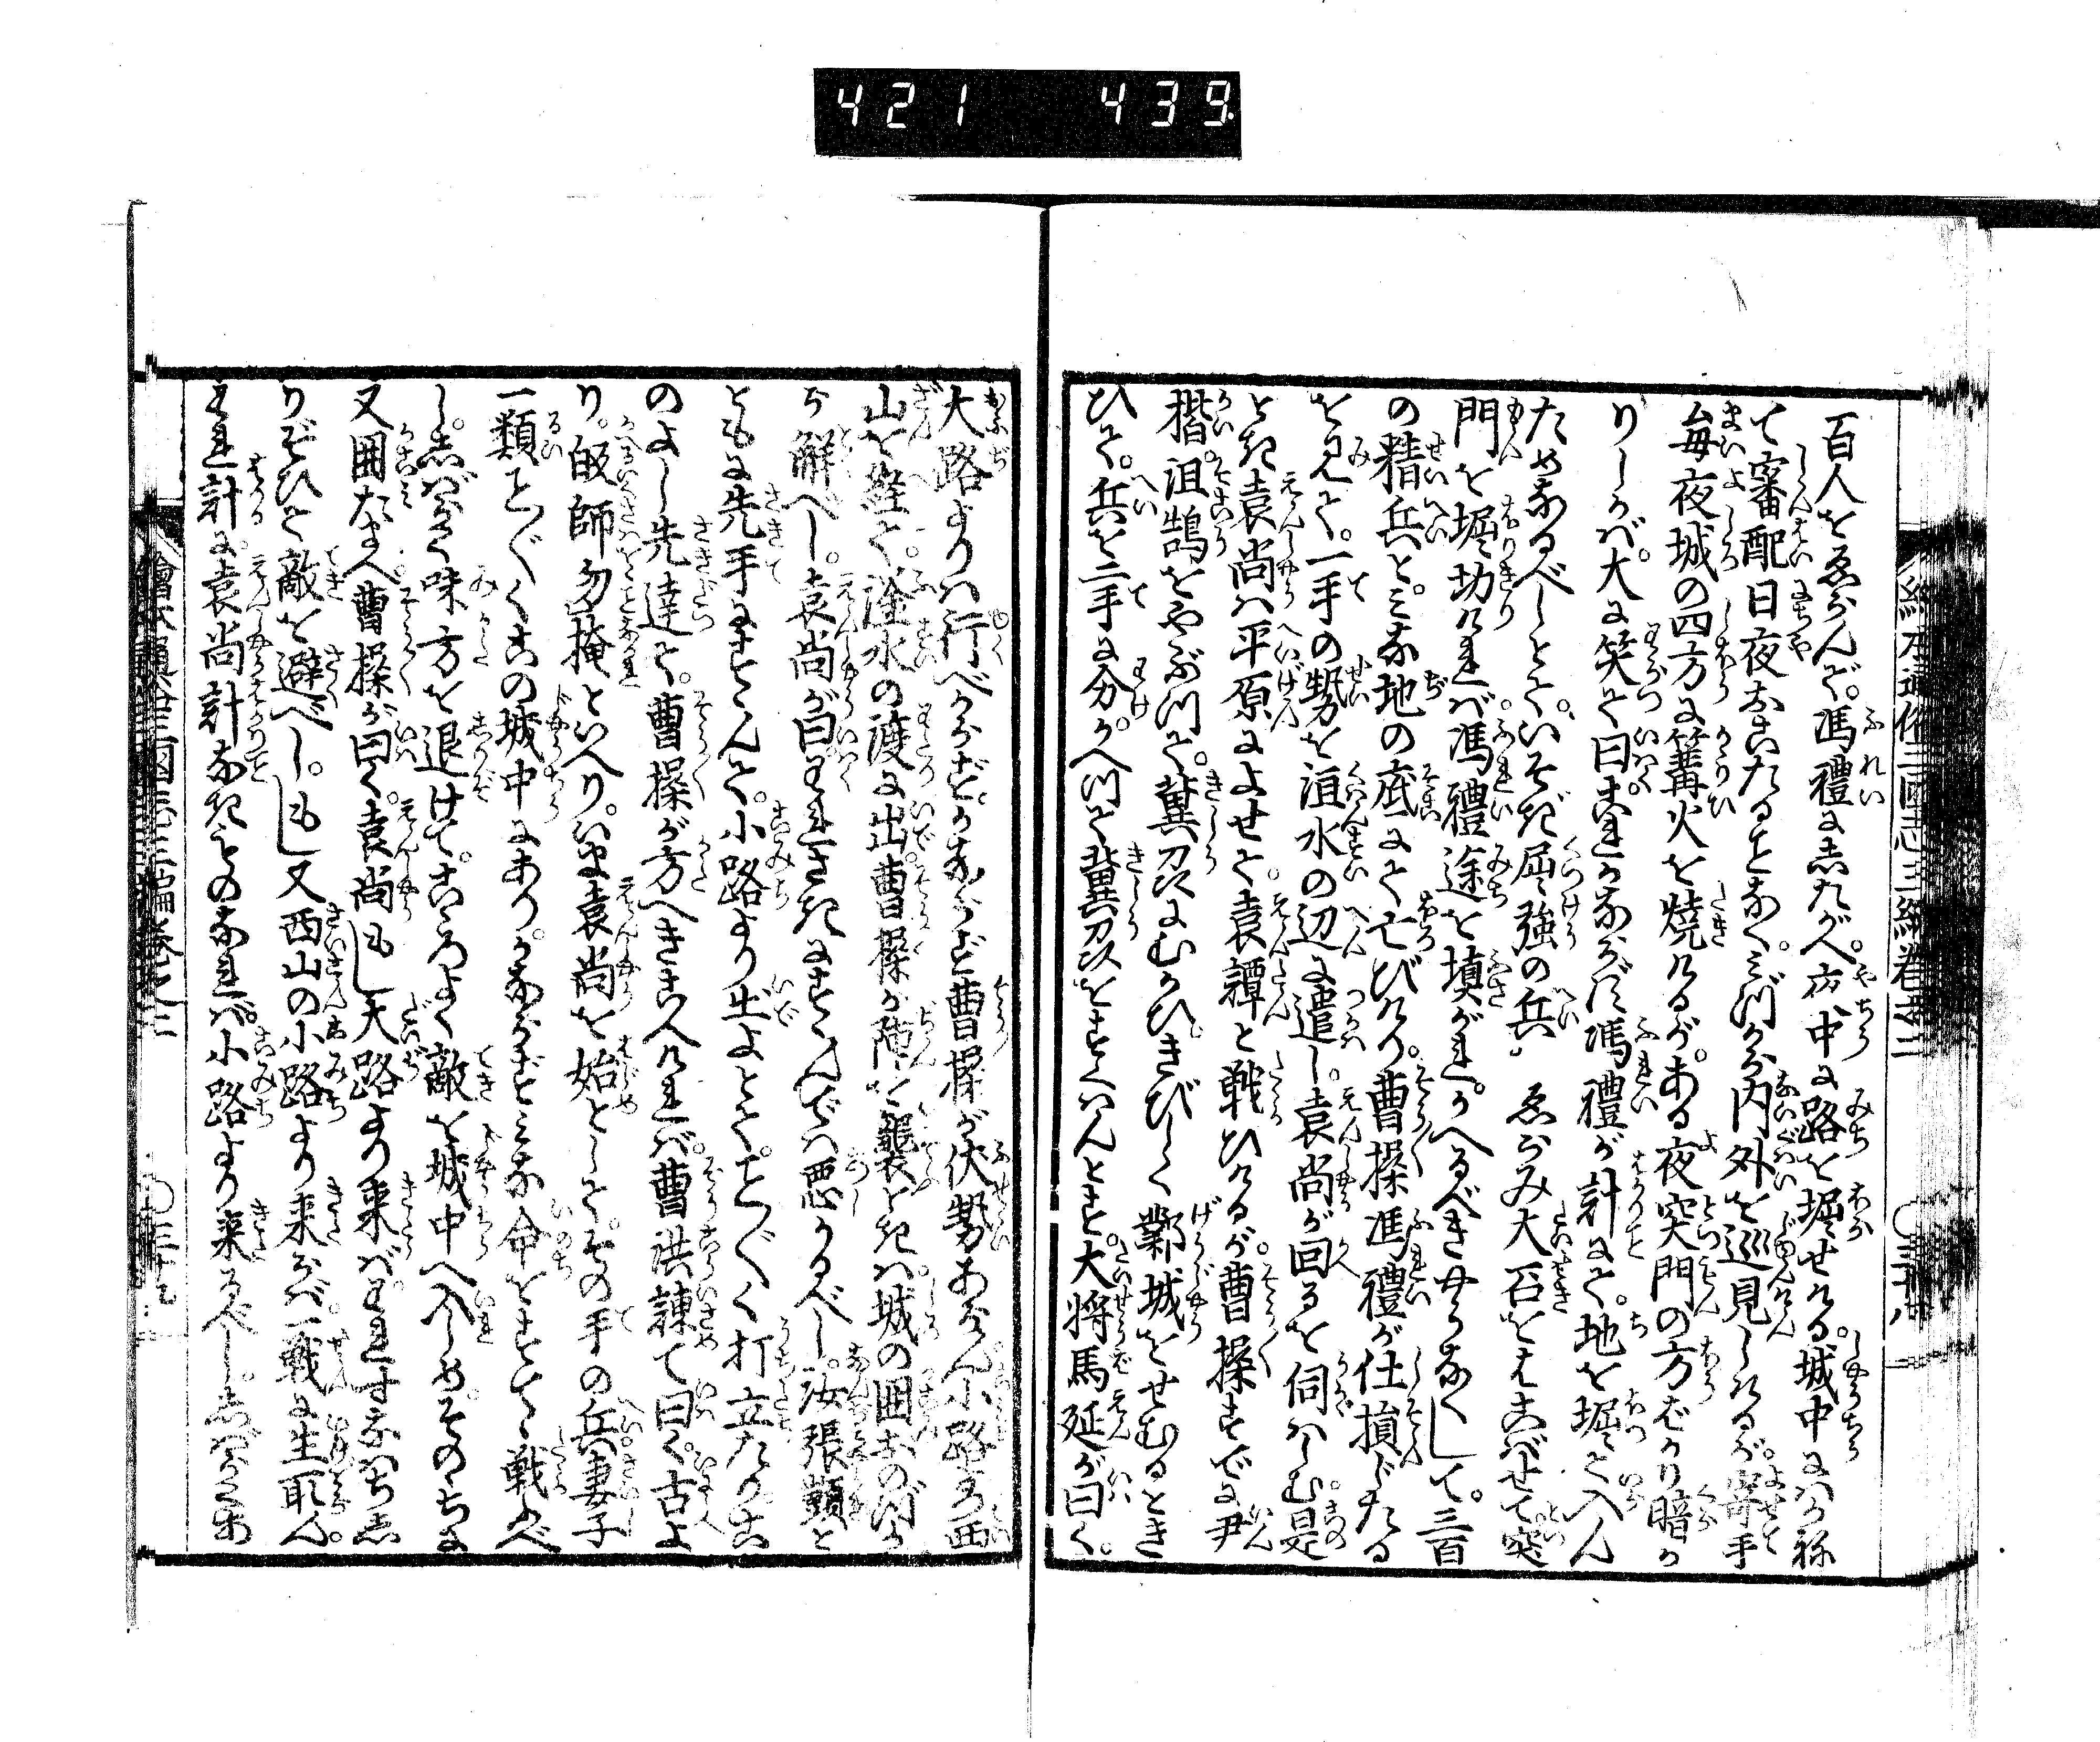 421 439
繪本通俗三國志三編卷之二
百人をゑらんで。馮禮にしたがへ。夜中に路を堀せける。城中にはかね
て審配日夜おこたることなく。みづから内外を巡見しけるが。寄手
毎夜城の四方に篝火を焼けるが。ある夜突門の方ばかり暗か
りしかば。大に笑て曰これかならず馮禮が計にて。地を堀て入ん
ためなるべしとて。いそぎ屈強の兵。ゑらみ大石をはこばせて突
門を堀切ければ。馮禮途を塡がれ。かへるべきやうなくして。三百
の精兵と。みな地の底にて亡びけり。曹操馮禮が仕損じたる
を見て。一手の勢を洹水の辺に遣し。袁尚が回るを伺はしむ。是
とき袁尚は平原によせて。袁譚と戦ひけるが。曹操すでに尹
楷。沮鵠をやぶりて。冀州にむかひ。きびしく鄴城をせむるとき
ひて。兵を二手に分かへりて冀州をすくはんとす。大将馬延が曰く。
大路よりは行べからず。かならず曹操が伏勢あらん。小路より西
山を経て。滏水の渡に出。曹操が陣を襲とき。城の囲おのづか
ら解べし。袁尚が曰われさきにすゝんでは悪かるべし。汝張顗と
ともに先手にすゝんで。小路より出よとて。ことごとく打立たりこ
のよし先達て。曹操が方へきこへければ。曹洪諌て曰く。古よ
り。皈師勿掩といへり。いま袁尚を始として。その手の兵妻子
一類ことごとくこの城中にあり。かならずみな命をすてゝ戦ふべ
し。しばらく味方を退けて。こゝろよく敵を城中へ入しめ。そのちに
又囲たまへ曹操が曰く。袁尚もし大路より来らば。われすなはちし
りぞひて敵を避べし。もし又西山の小路より来らば。一戦に生取ん。
われ計に。袁尚計なきものなれば。小路より来るべし。しばらくま
繪本通俗三國志三編卷之二